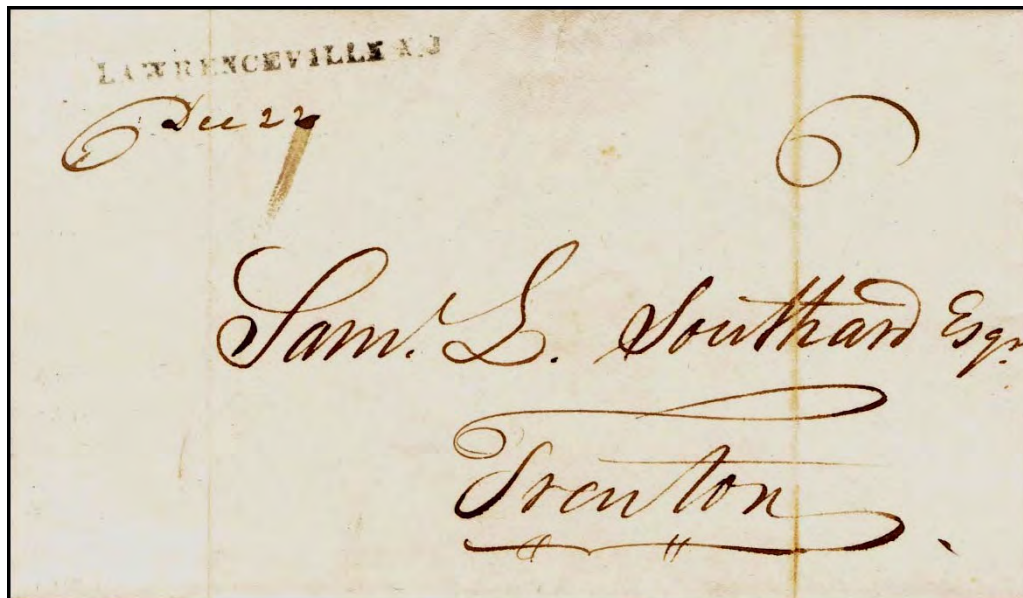 LAWRENCEVILLE N.J
Dec 22
6
Saml. L. Southard Esqr.
Trenton